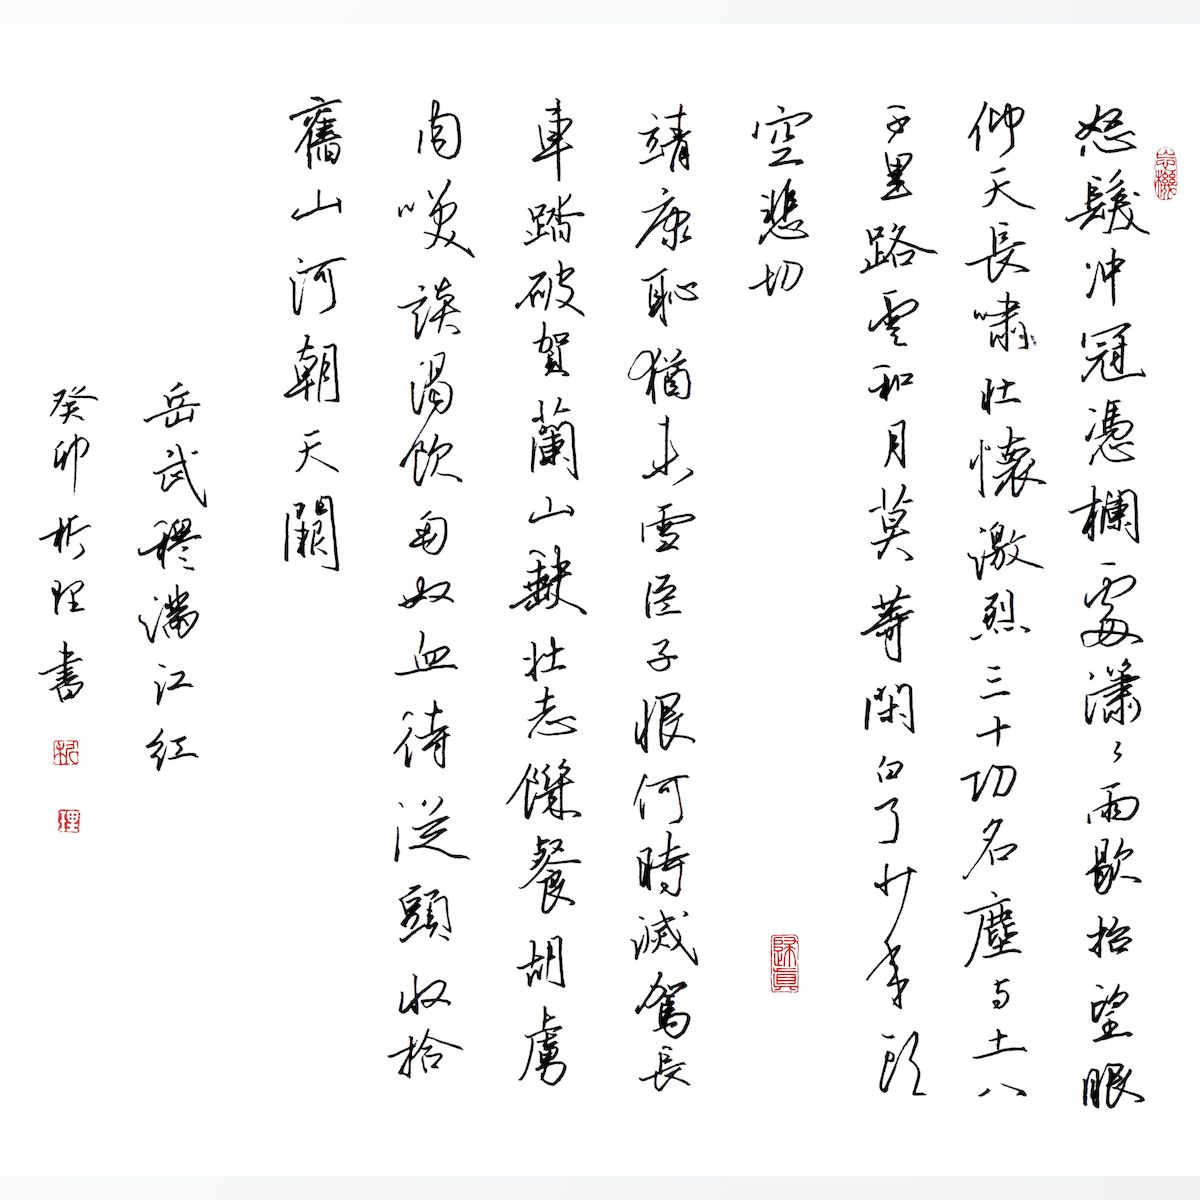 怒髮冲冠憑欄處瀟々雨歇抬望眼
仰天長嘯壮懷激烈三十功名塵与土八
千里路雲和月莫等閑白了少年頭
空悲切
歸真
靖康恥猶未雪臣子恨何時滅駕長
車踏破賀蘭山缺壮志饑餐胡虜
肉咲談渴飲匈奴血待從頭收拾
舊山河朝天闕
岳武穆滿江紅
癸卯析理書
析
理